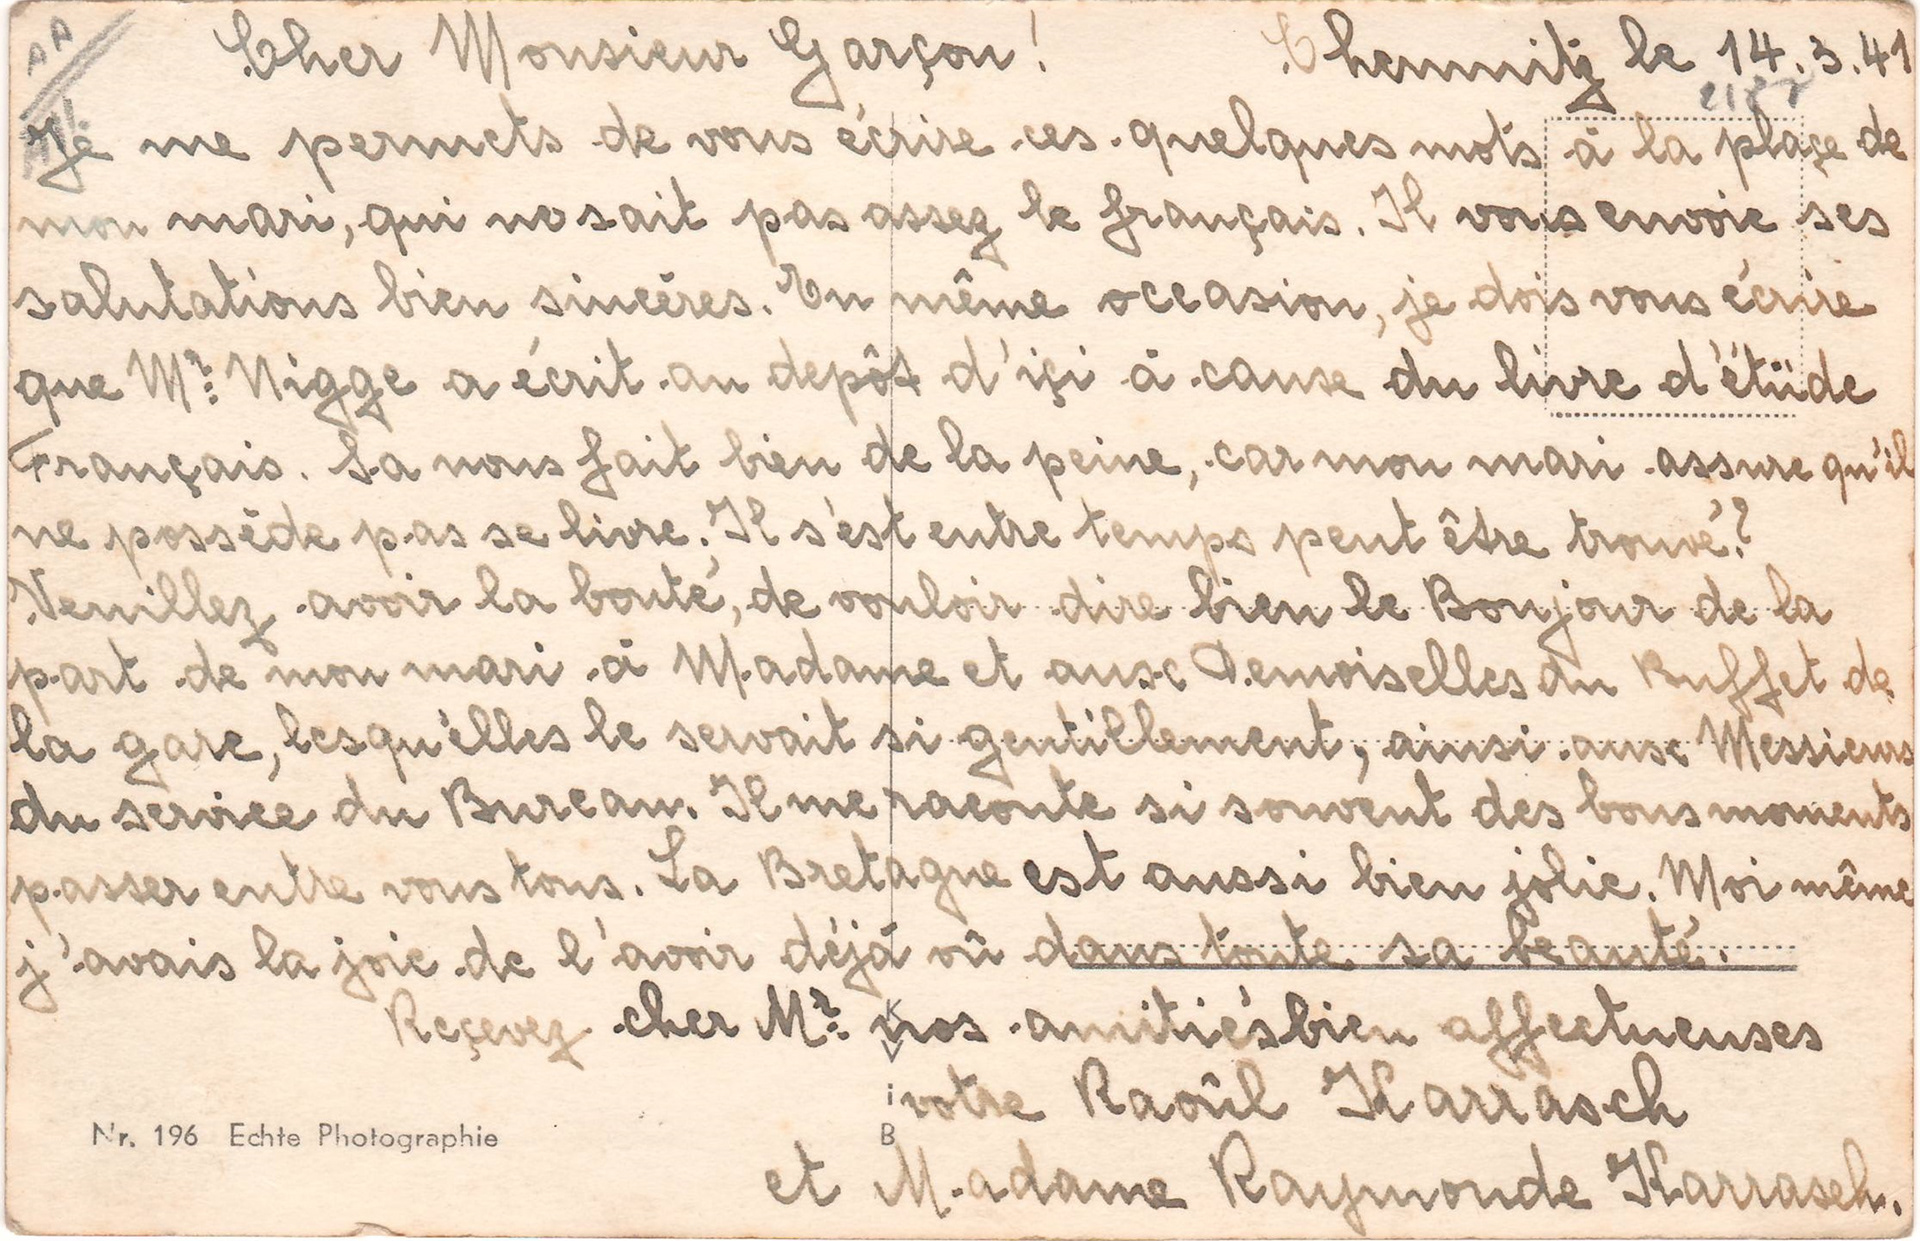 Cher Monsieur Garçon! Chemnitz le 14.3.41
Je me permets de vous écrire ces quelques mots à la plaçe de
mon mari, qui ne sait pas assez le français. Il vous envoie ses
salutations bien sincères. En même occasion, je dois vous écrire
que Mr: Nigge a écrit au depôt d'içi à cause du livre d'étüde
Français. Sa nous fait bien de la peine, car mon mari assure qu'il
ne possède pas se livre. Il s'est entre temps peut être trouvé?
Veuillez avoir la bonté, de vouloir dire bien le Bonjour de la
part de mon mari à Madame et aux Demoiselles du Buffet de
la gare, lesqu'élles le servait si gentillement, ainsi aux Messieurs
du service du Bureau. Il me raconte si souvent des bons moments
passer entre vous tous. La Bretagne est aussi bien jolie. Moi même
j'avais la joie de l'avoir déjà vû dans toute sa beauté.
Reçevez cher Mr: nos amitiés bien affectueuses
votre Raoûl Karrasch
et Madame Raymonde Karrasch.
Nr. 196 Echte Photographie